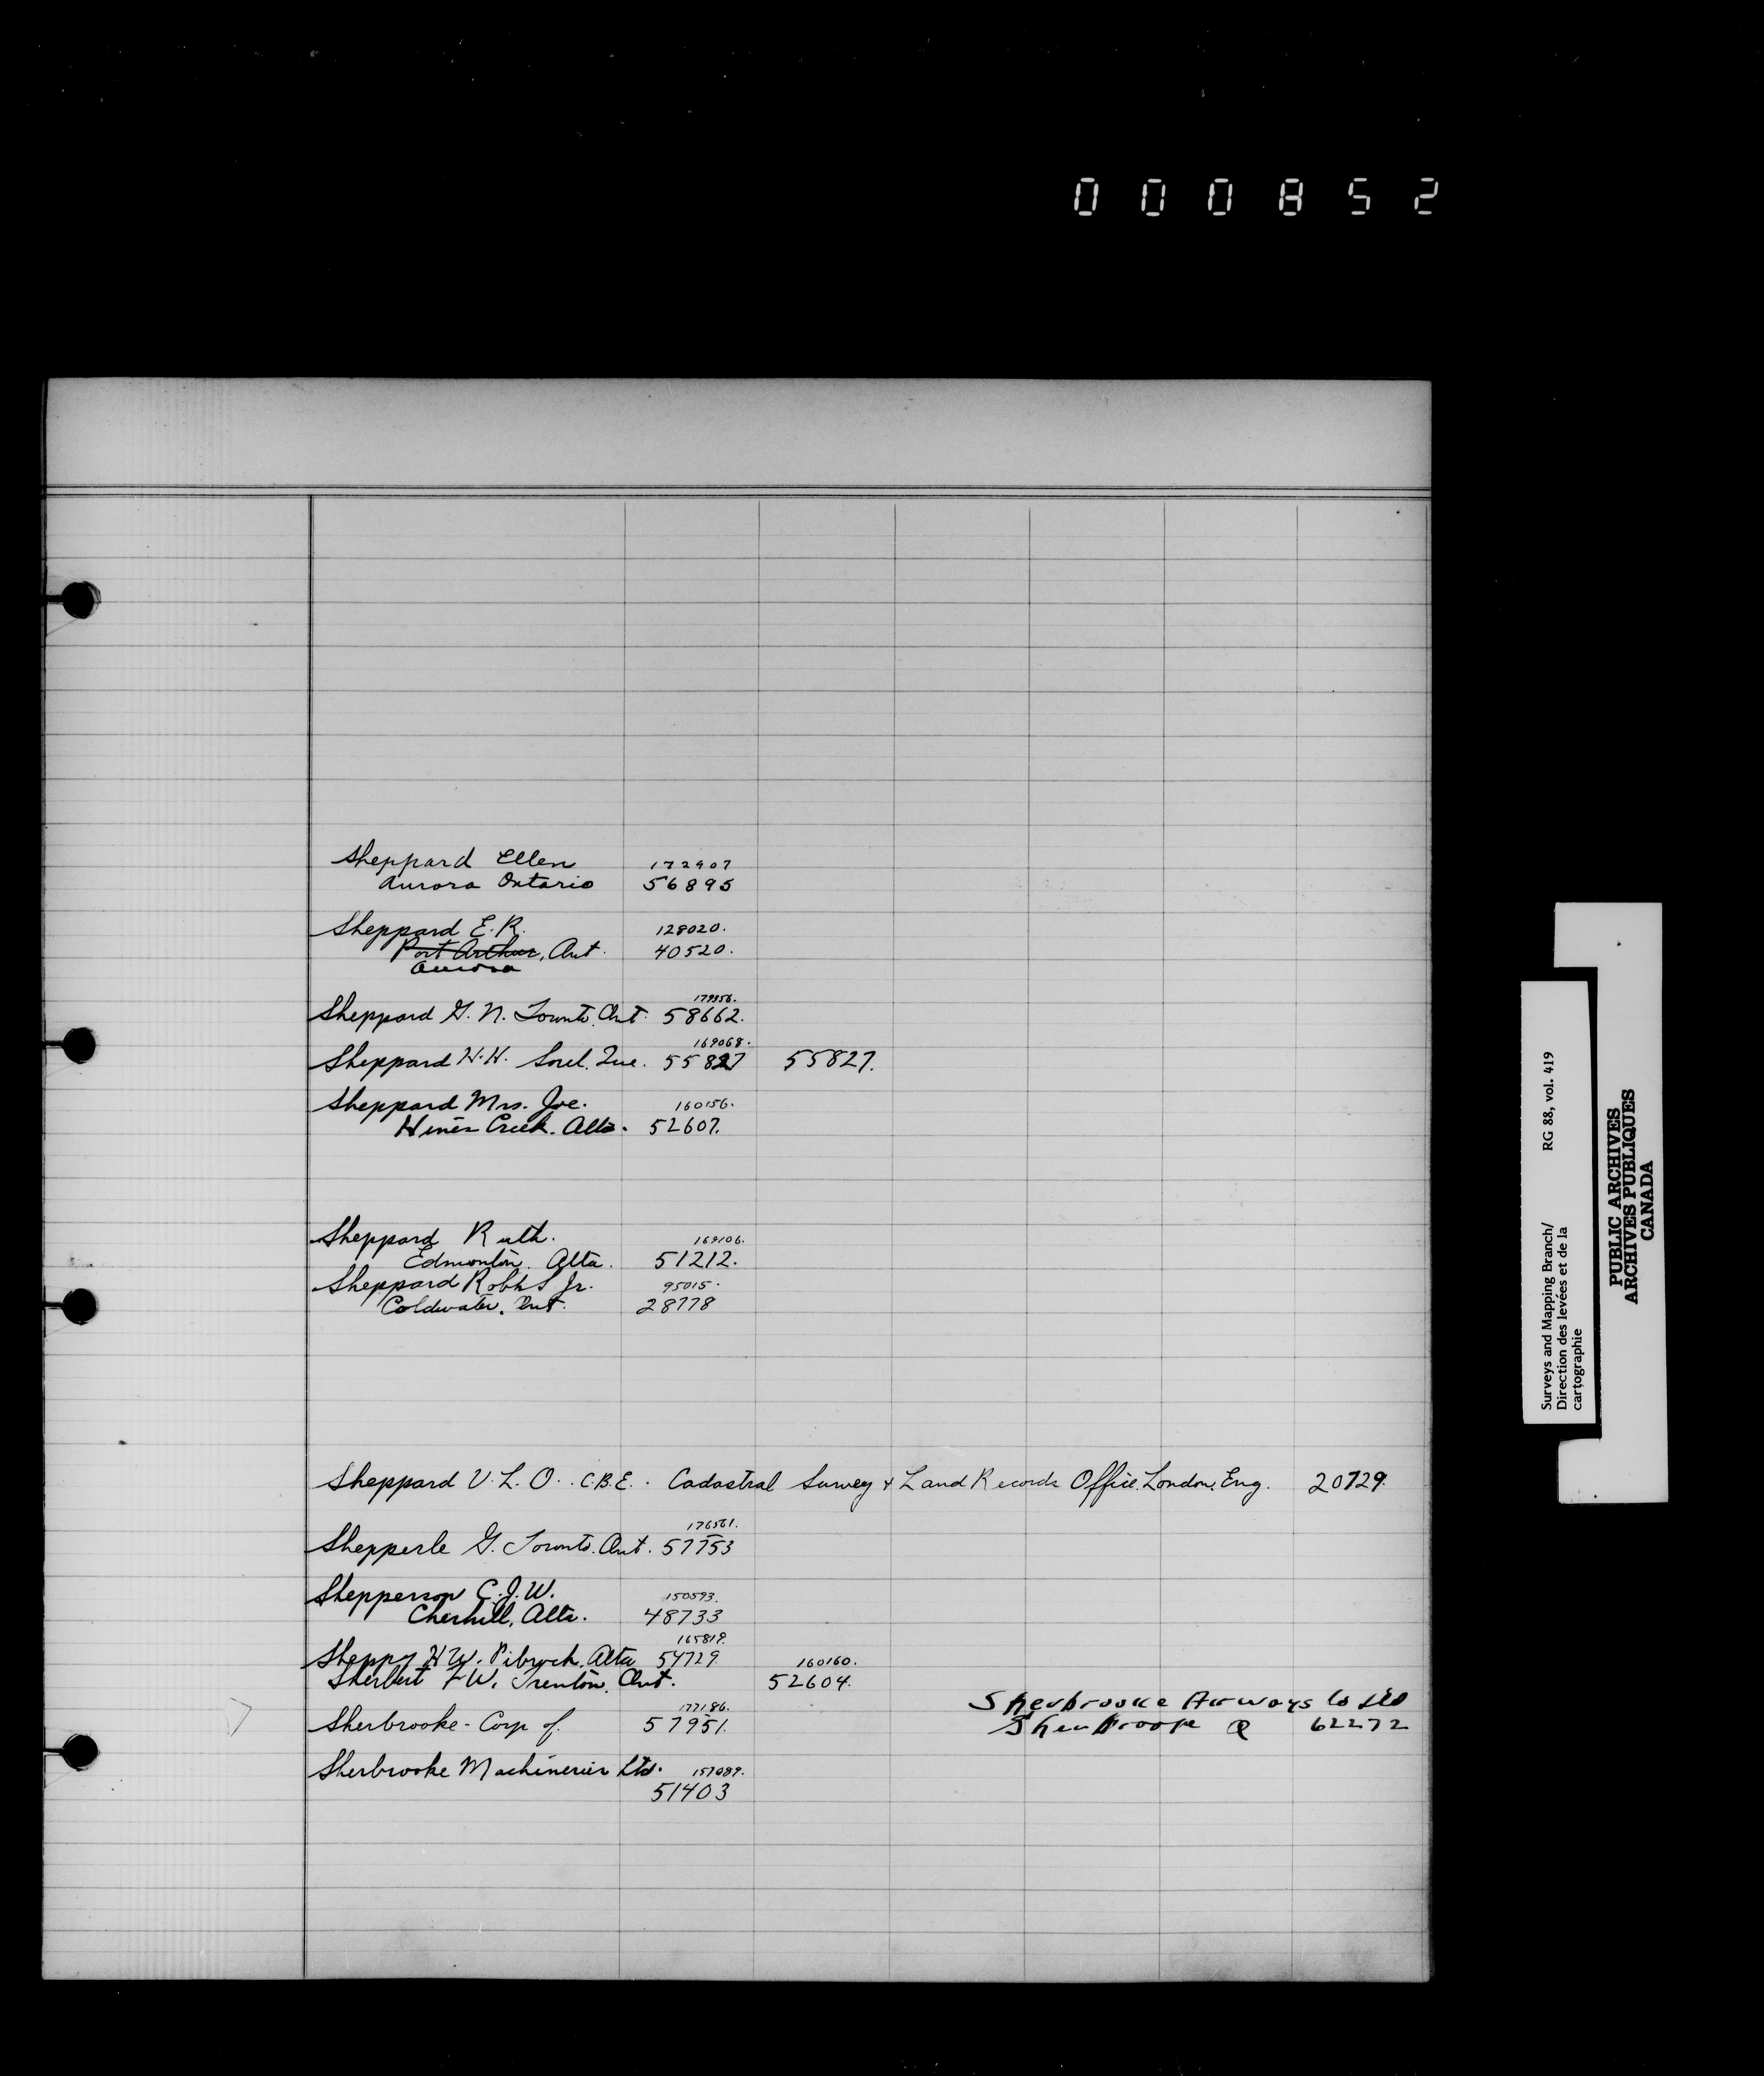 000852
Sheppard Ellen 172907
Aurora Ontario 56895
Sheppard E.R. 128020.
Port Arthur, Ont. 40520.
Aurora
179956.
Sheppard G. N. Toronto. Ont. 58662.
169068.
Sheppard H.H. Sorel. Que. 55827 55827.
Sheppard Mrs. Joe. 160156.
Hines Creek. Alta. 52607.
Sheppard Ruth. 169106.
Edmonton. Alta. 51212.
Sheppard Robt S Jr. 95015.
Coldwater. Ont. 28778
Sheppard V. L. O. C.B.E. Cadastral Survey & Land Records Office. London. Eng. 20729.
176561.
Shepperle G. Toronto. Ont. 57753
Shepperson C.J.W. 150593.
Cherhill, Alta. 48733
165819.
Sheppy H W. Pibroch. Alta 54729. 160160.
Sherbert F W. Trenton. Ont. 52604.
177186. Sherbrooke Airways Co Ltd
Sherbrooke - Corp of. 57951. Sherbrooke Q 62272
Sherbrooke Machineries Ltd. 157089.
51403
Surveys and Mapping Branch/ RG 88, vol. 419
Direction des levées et de la
cartographie
PUBLIC ARCHIVES
ARCHIVES PUBLIQUES
CANADA